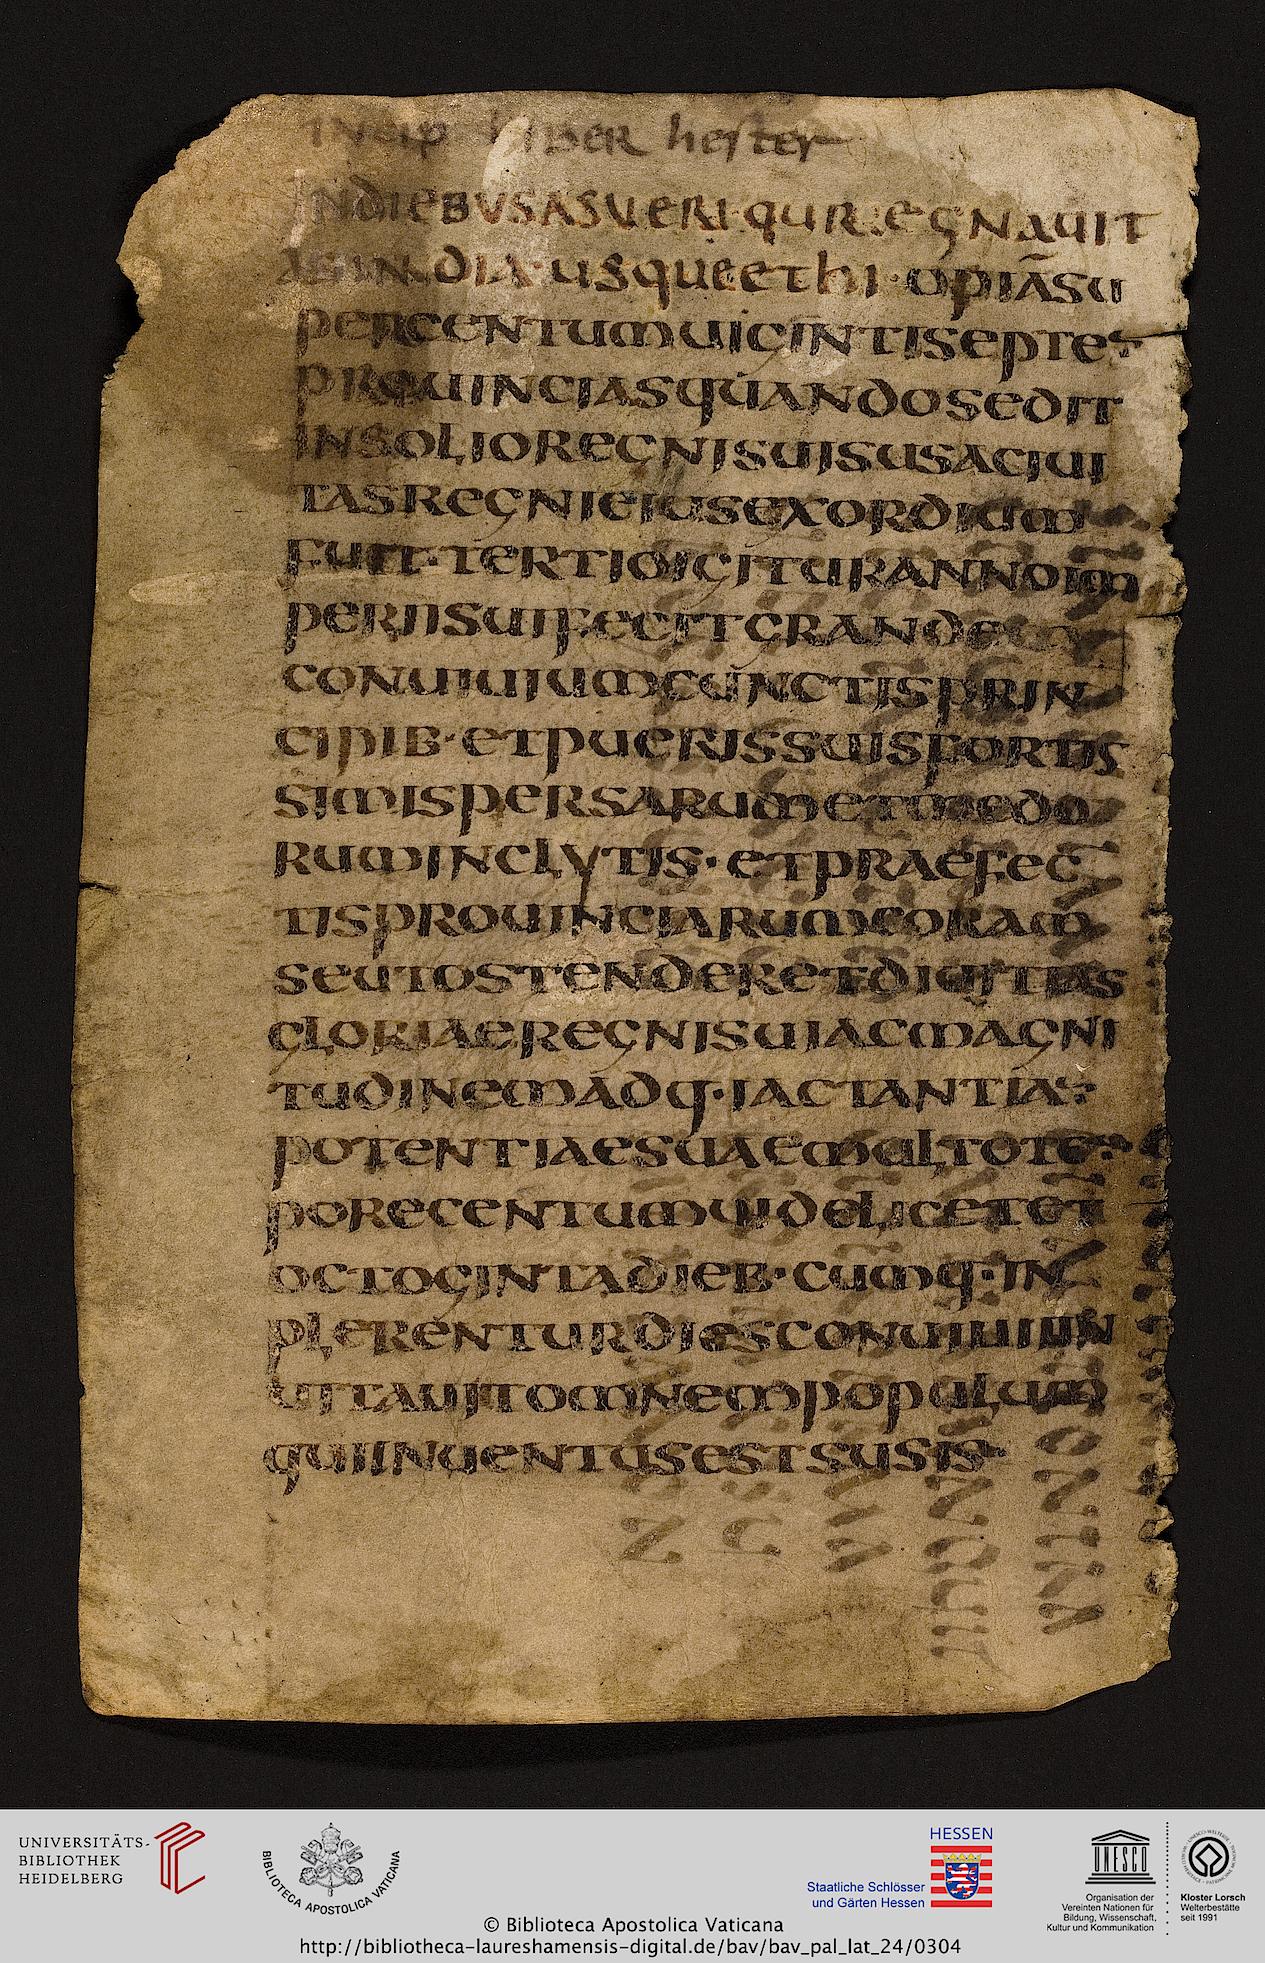 INCIP LIBER hester
INDIEBUSASUERI·QUIREGNAUIT
ABINDIA·USQUEETHI·OPIĀSU
PERCENTUMUIGINTISEPTE·
PROUINCIASQUANDOSEDIT
INSOLIOREGNISUISUSACIUI
TASREGNIEIUSEXORDIUM
FUIT·TERTIOIGITURANNOIM
PERIISUIFECITGRANDEM
CONUIUIUMCUNCTISPRIN
CIPIB·ETPUERISSUISFORTIS
SIMISPERSARUMETMEDO
RUMINCLYTIS·ETPRAEFEC
TISPROUINCIARUMCORAM
SEUTOSTENDERETDIUITIAS
GLORIAEREGNISUIACMAGNI
TUDINEMADQ·IACTANTIA·
POTENTIAESUAEMULTOTE·
PORECENTUMUIDELICETET
OCTOGINTADIEB·CUMQ·IN
PLERENTURDIESCONUIUIIIN
UITAUITOMNEMPOPULUM
QUIINUENTUSESTSUSIS·
UNIVERSITÄTS-
BIBLIOTHEK
HEIDELBERG
BIBLIOTECA APOSTOLICA VATICANA
HESSEN
Staatliche Schlösser
und Gärten Hessen
UNESCO
Organisation der
Vereinten Nationen für
Bildung, Wissenschaft,
Kultur und Kommunikation
Kloster Lorsch
Welterbestätte
seit 1991
© Biblioteca Apostolica Vaticana
http://bibliotheca-laureshamensis-digital.de/bav/bav_pal_lat_24/0304